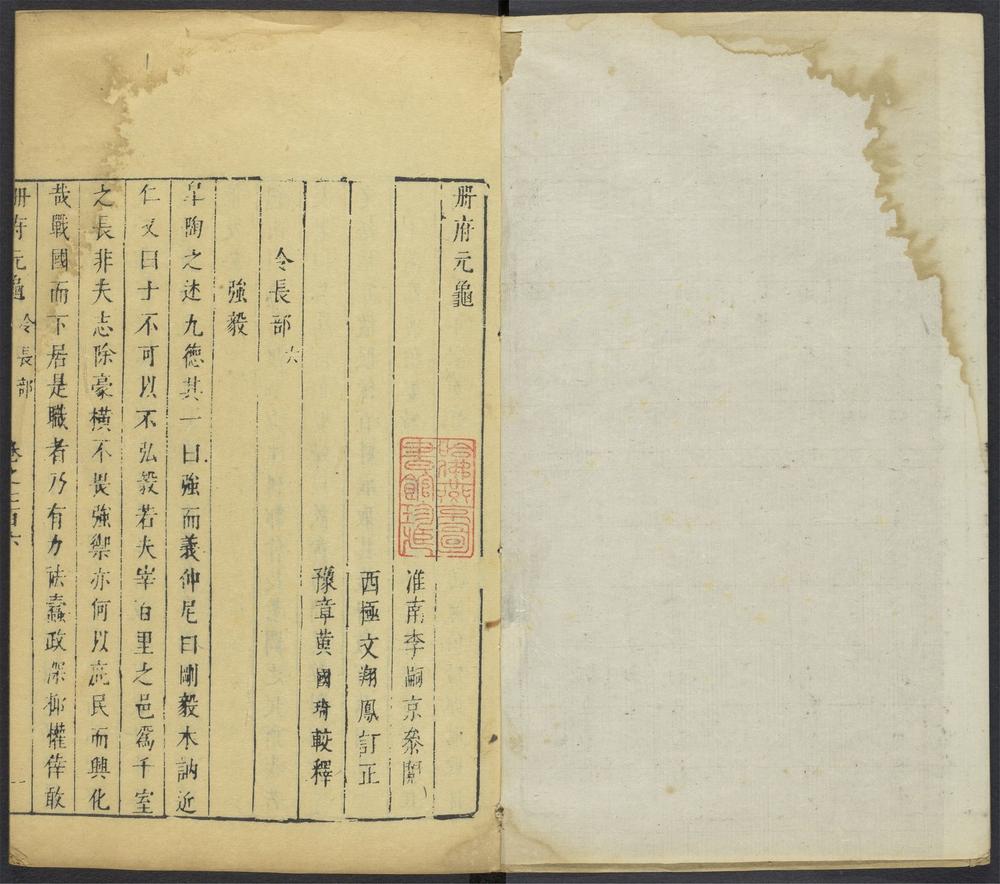 冊府元龜
淮南李嗣京叅閱
西極文翔鳳訂正
豫章黄國琦較釋
令長部六
強毅
皐陶之述九德其一曰強而義仲尼曰剛毅木訥近
仁又曰士不可以不弘毅若夫宰百里之邑為千室
之長非夫志除豪橫不畏強禦亦何以庇民而興化
哉戰國而下居是職者乃有力祛蠹政深抑權倖敢
冊府元龜 令長部 卷之七百六 一
哈佛燕京圖書館珍藏